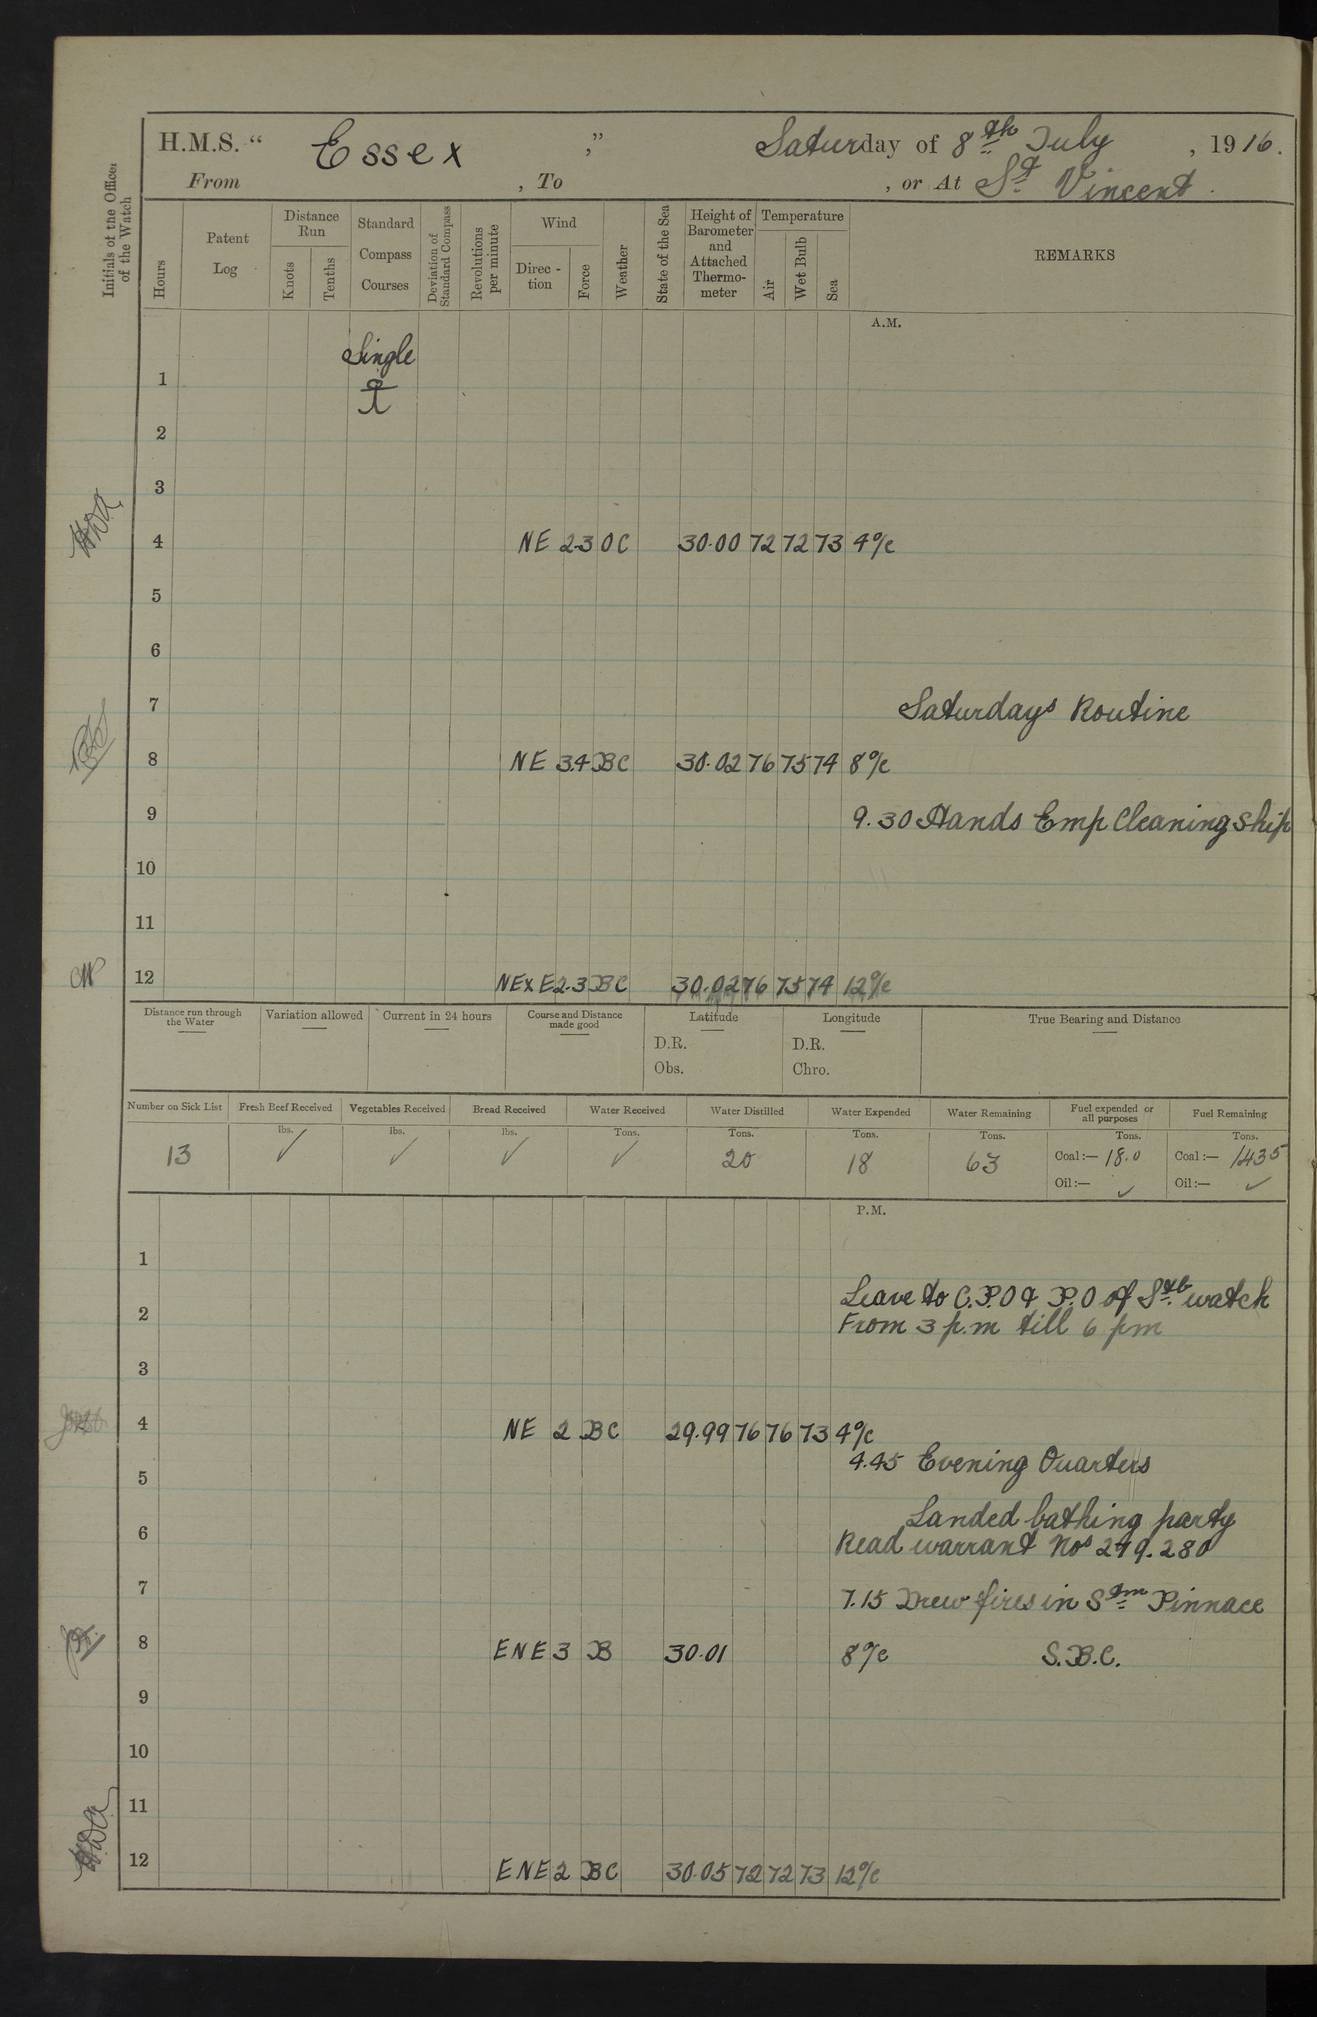 H.M.S. “ Essex ” Saturday of 8th July , 1916.
From , To , or At St Vincent .
Initials of the Officer of the Watch
Hours
Patent Log
Distance Run
Knots
Tenths
Standard Compass Courses
Deviation of Standard Compass
Revolutions per minute
Wind
Direc-tion
Force
Weather
State of the Sea
Height of Barometer and Attached Thermo-meter
Temperature
Air
Wet Bulb
Sea
REMARKS
A.M.
Single
1
2
3
4 NE 2-3 OC 30.00 72 72 73 4 o/c
5
6
7 Saturdays Routine
8 NE 3.4 BC 30.02 76 75 74 8 o/c
9 9.30 Hands Emp Cleaning Ship
10
11
12 NExE 2-3 BC 30.02 76 75 74 12 o/c
Distance run through the Water
Variation allowed
Current in 24 hours
Course and Distance made good
Latitude
D.R.
Obs.
Longitude
D.R.
Chro.
True Bearing and Distance
Number on Sick List Fresh Beef Received Vegetables Received Bread Received Water Received Water Distilled Water Expended Water Remaining Fuel expended or all purposes Fuel Remaining
lbs. lbs. lbs. Tons. Tons. Tons. Tons. Tons. Tons.
13 ✓ ✓ ✓ ✓ 20 18 63 Coal:— 18.0 Coal:— 1435
Oil:— ✓ Oil:— ✓
P.M.
1
Leave to C.P.O & P.O of Stb watch
2 From 3 p.m till 6 pm
3
4 NE 2 BC 29.99 76 76 73 4 o/c
4.45 Evening Quarters
5
Landed bathing party
6 Read warrant Nos 279.280
7 7.15 Drew fires in Stm Pinnace
8 ENE 3 B 30.01 8 o/c S.B.C.
9
10
11
12 ENE 2 BC 30.05 72 72 73 12 o/c